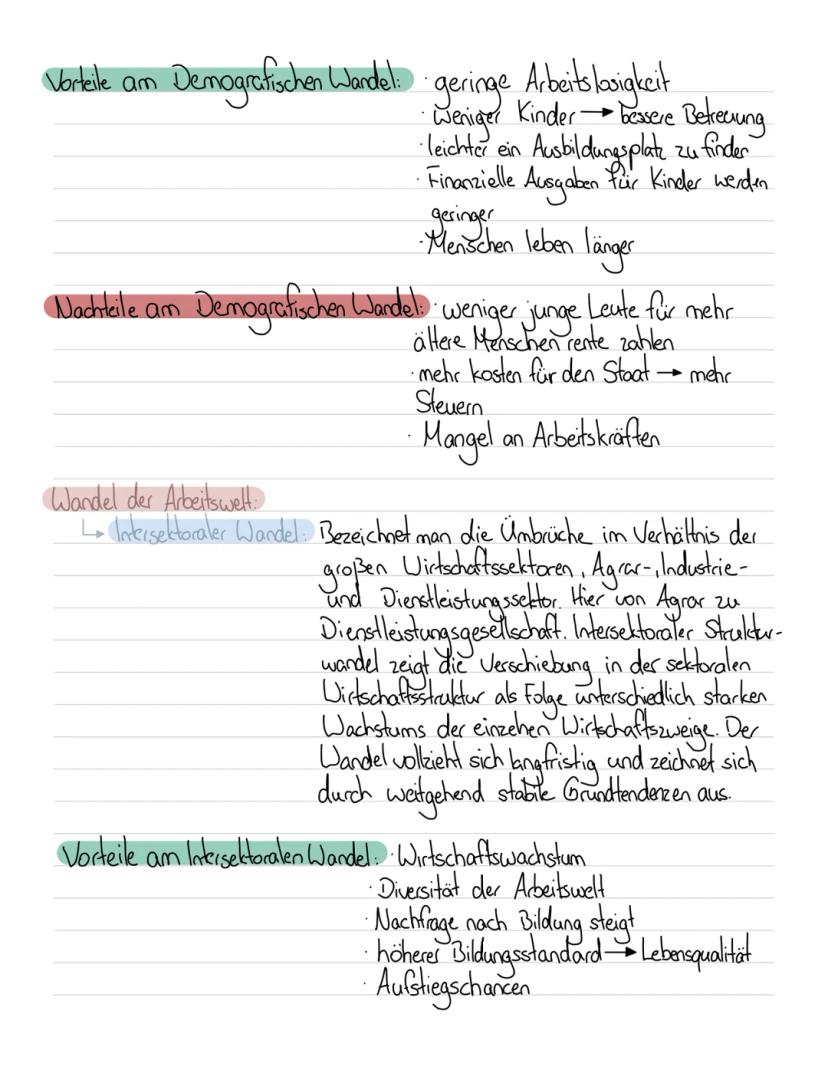 Vorteile am Demografischen Wandel: · geringe Arbeitslosigkeit
· Weniger Kinder → bessere Betreuung
· leichter ein Ausbildungsplatz zu finden
· Finanzielle Ausgaben für Kinder werden
geringer
· Menschen leben länger
Nachteile am Demografischen Wandel: · weniger junge Leute für mehr
ältere Menschen rente zahlen
· mehr kosten für den Staat → mehr
Steuern
· Mangel an Arbeitskräften
Wandel der Arbeitswelt:
↳ Intersektoraler Wandel: Bezeichnet man die Umbrüche im Verhältnis der
großen Wirtschaftssektoren, Agrar-, Industrie-
und Dienstleistungssektor. Hier von Agrar zu
Dienstleistungsgesellschaft. Intersektoraler Struktur-
wandel zeigt die Verschiebung in der sektoralen
Wirtschaftsstruktur als Folge unterschiedlich starken
Wachstums der einzelnen Wirtschaftszweige. Der
Wandel vollzieht sich langfristig und zeichnet sich
durch weitgehend stabile Grundtendenzen aus.
Vorteile am Intersektoralen Wandel: · Wirtschaftswachstum
· Diversität der Arbeitswelt
· Nachfrage nach Bildung steigt
· höherer Bildungsstandard → Lebensqualität
· Aufstiegschancen